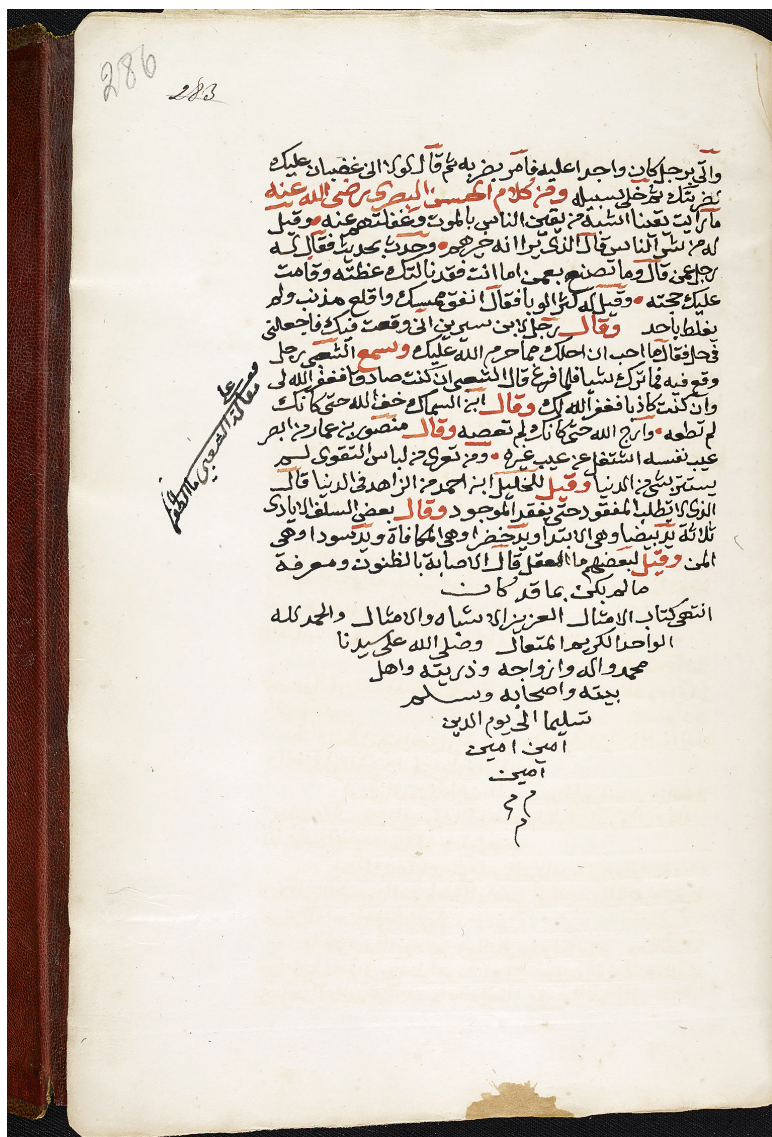 286
283
واتي برجل كان واجدا عليه فامر بضربه ثم قال لولا اني غضبان عليك
لضربتك ثم خلي سبيله ومن كلام الحسن البصري رضي الله عنه
ما رايت يقينا اشبه من يقين الناس بالموت وغفلتهم عنه وقيل
له من شر الناس قال الذي يرا انه خيرهم وحدث بحديث فقال له
رجل عمن قال وما تصنع بعمن اما انت فقد نالتك عظته وقامت
عليك حجته وقيل له كثر الوبا فقال انفق ممسك واقلع مذنب ولم
يغلط باحد وقال رجل لابن سيرين اني وقعت فيك فاجعلني
في حل فقال ما احب ان احلك مما حرم الله عليك وسمع الشعبي رجل
وقع فيه فما ترك شيا فلما فرغ قال الشعبي ان كنت صادقا فغفر الله لي
وان كنت كاذبا فغفر الله لك وقال ابن السماك خف الله حتى كانك
لم تطعه وارج الله حتى كانك لم تعصيه وقال منصور بن عمار من ابصر
عيب نفسه اشتغل عن عيب غيره ومن تعرى من لباس التقوى لم
يستتر بشي من الدنيا وقيل للخليل ابن احمد من الزاهد في الدنيا قال
الذي لا يطلب المفقود حتى يفقد الموجود وقال بعض السلف الايادي
ثلاثة يد بيضا وهي الابتدا ويد خضرا وهي المكافاة ويد سودا وهي
المن وقيل لبعضهم ما العقل قال الاصابة بالظنون ومعرفة
ما لم يكن بما قد كان
انتهى كتاب الامثال العزيز الاشباه والامثال والحمد لله
الواحد الكريم المتعال وصلي الله علي سيدنا
محمد واله وازواجه وذريته واهل
بيته واصحابه وسلم
تسليما الي يوم الدين
امين امين
امين
م م
م
على
مقالة الشعبي